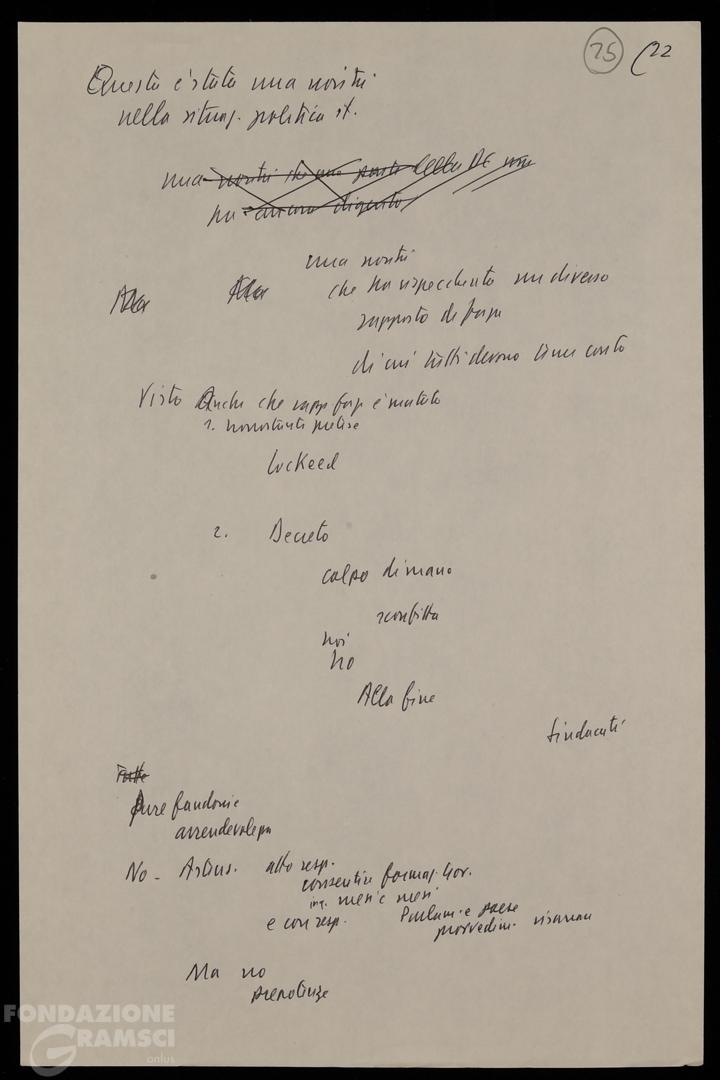 25 (22
Questa è stata una novità
nella situaz. politica it.
una novità che una parte della DC non
ha ancora digerito
una novità
Alla Alla che ha rispecchiato un diverso
rapporto di forze
di cui tutti devono tener conto
Visto Anche che rapp forze è mutato
1. nonostante pretese
Lockeed
2. Decreto
colpo di mano
sconfitta
noi
no
Alla fine
Sindacati
Tutte
Pure fandonie
arrendevolezza
No - Astens. atto resp.
consentire formaz. Gov.
mesi e mesi
e con resp. Parlam. e paese
provvedim.
Ma no
prepotenze
FONDAZIONE
GRAMSCI
onlus